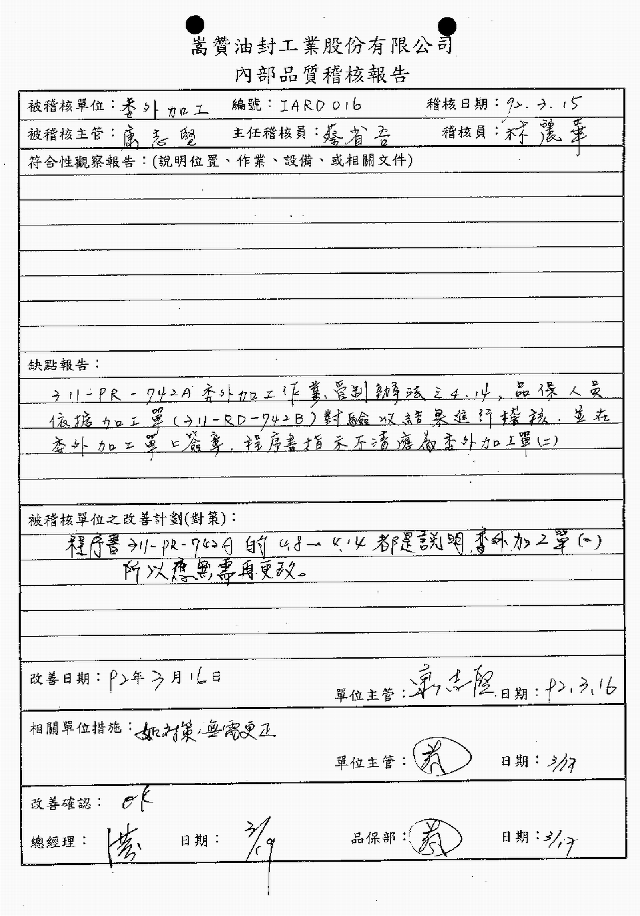 嵩贊油封工業股份有限公司
內部品質稽核報告
被稽核單位：委外加工 編號：IARD016 稽核日期：92.3.15
被稽核主管：康志堅 主任稽核員：蔡省吾 稽核員：林麗華
符合性觀察報告：(說明位置、作業、設備、或相關文件)
缺點報告：
311-PR-742A 委外加工作業管制辦法之4.14，品保人員
依據加工單(311-RD-742B)對驗收結果進行稽核，並在
委外加工單上簽章，程序書指示不清應為委外加工單(二)
被稽核單位之改善計劃(對策)：
程序書311-PR-742A的4.8~4.14都是說明委外加工單(二)
所以應無需再更改。
改善日期：92年3月16日
單位主管：康志堅 日期：92.3.16
相關單位措施：如對策，無需更正
單位主管：蔡 日期：3/17
改善確認：OK
總經理： 日期：3/19 品保部：蔡 日期：3/17